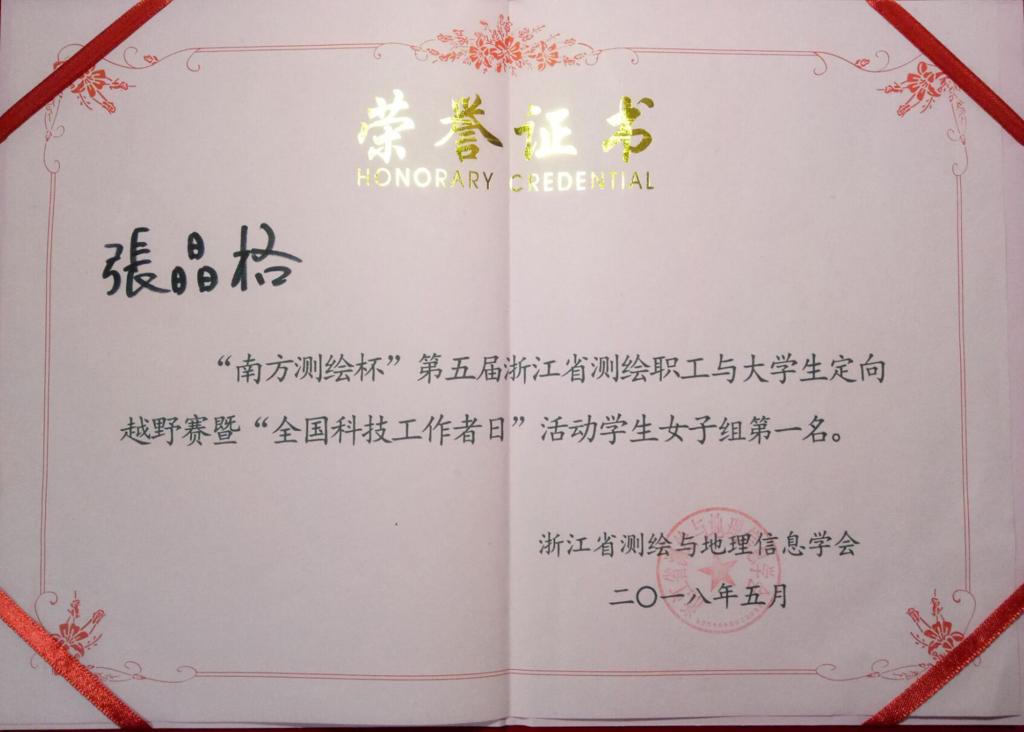 荣誉证书
HONORARY CREDENTIAL
張晶格
“南方测绘杯”第五届浙江省测绘职工与大学生定向
越野赛暨“全国科技工作者日”活动学生女子组第一名。
浙江省测绘与地理信息学会
二〇一八年五月